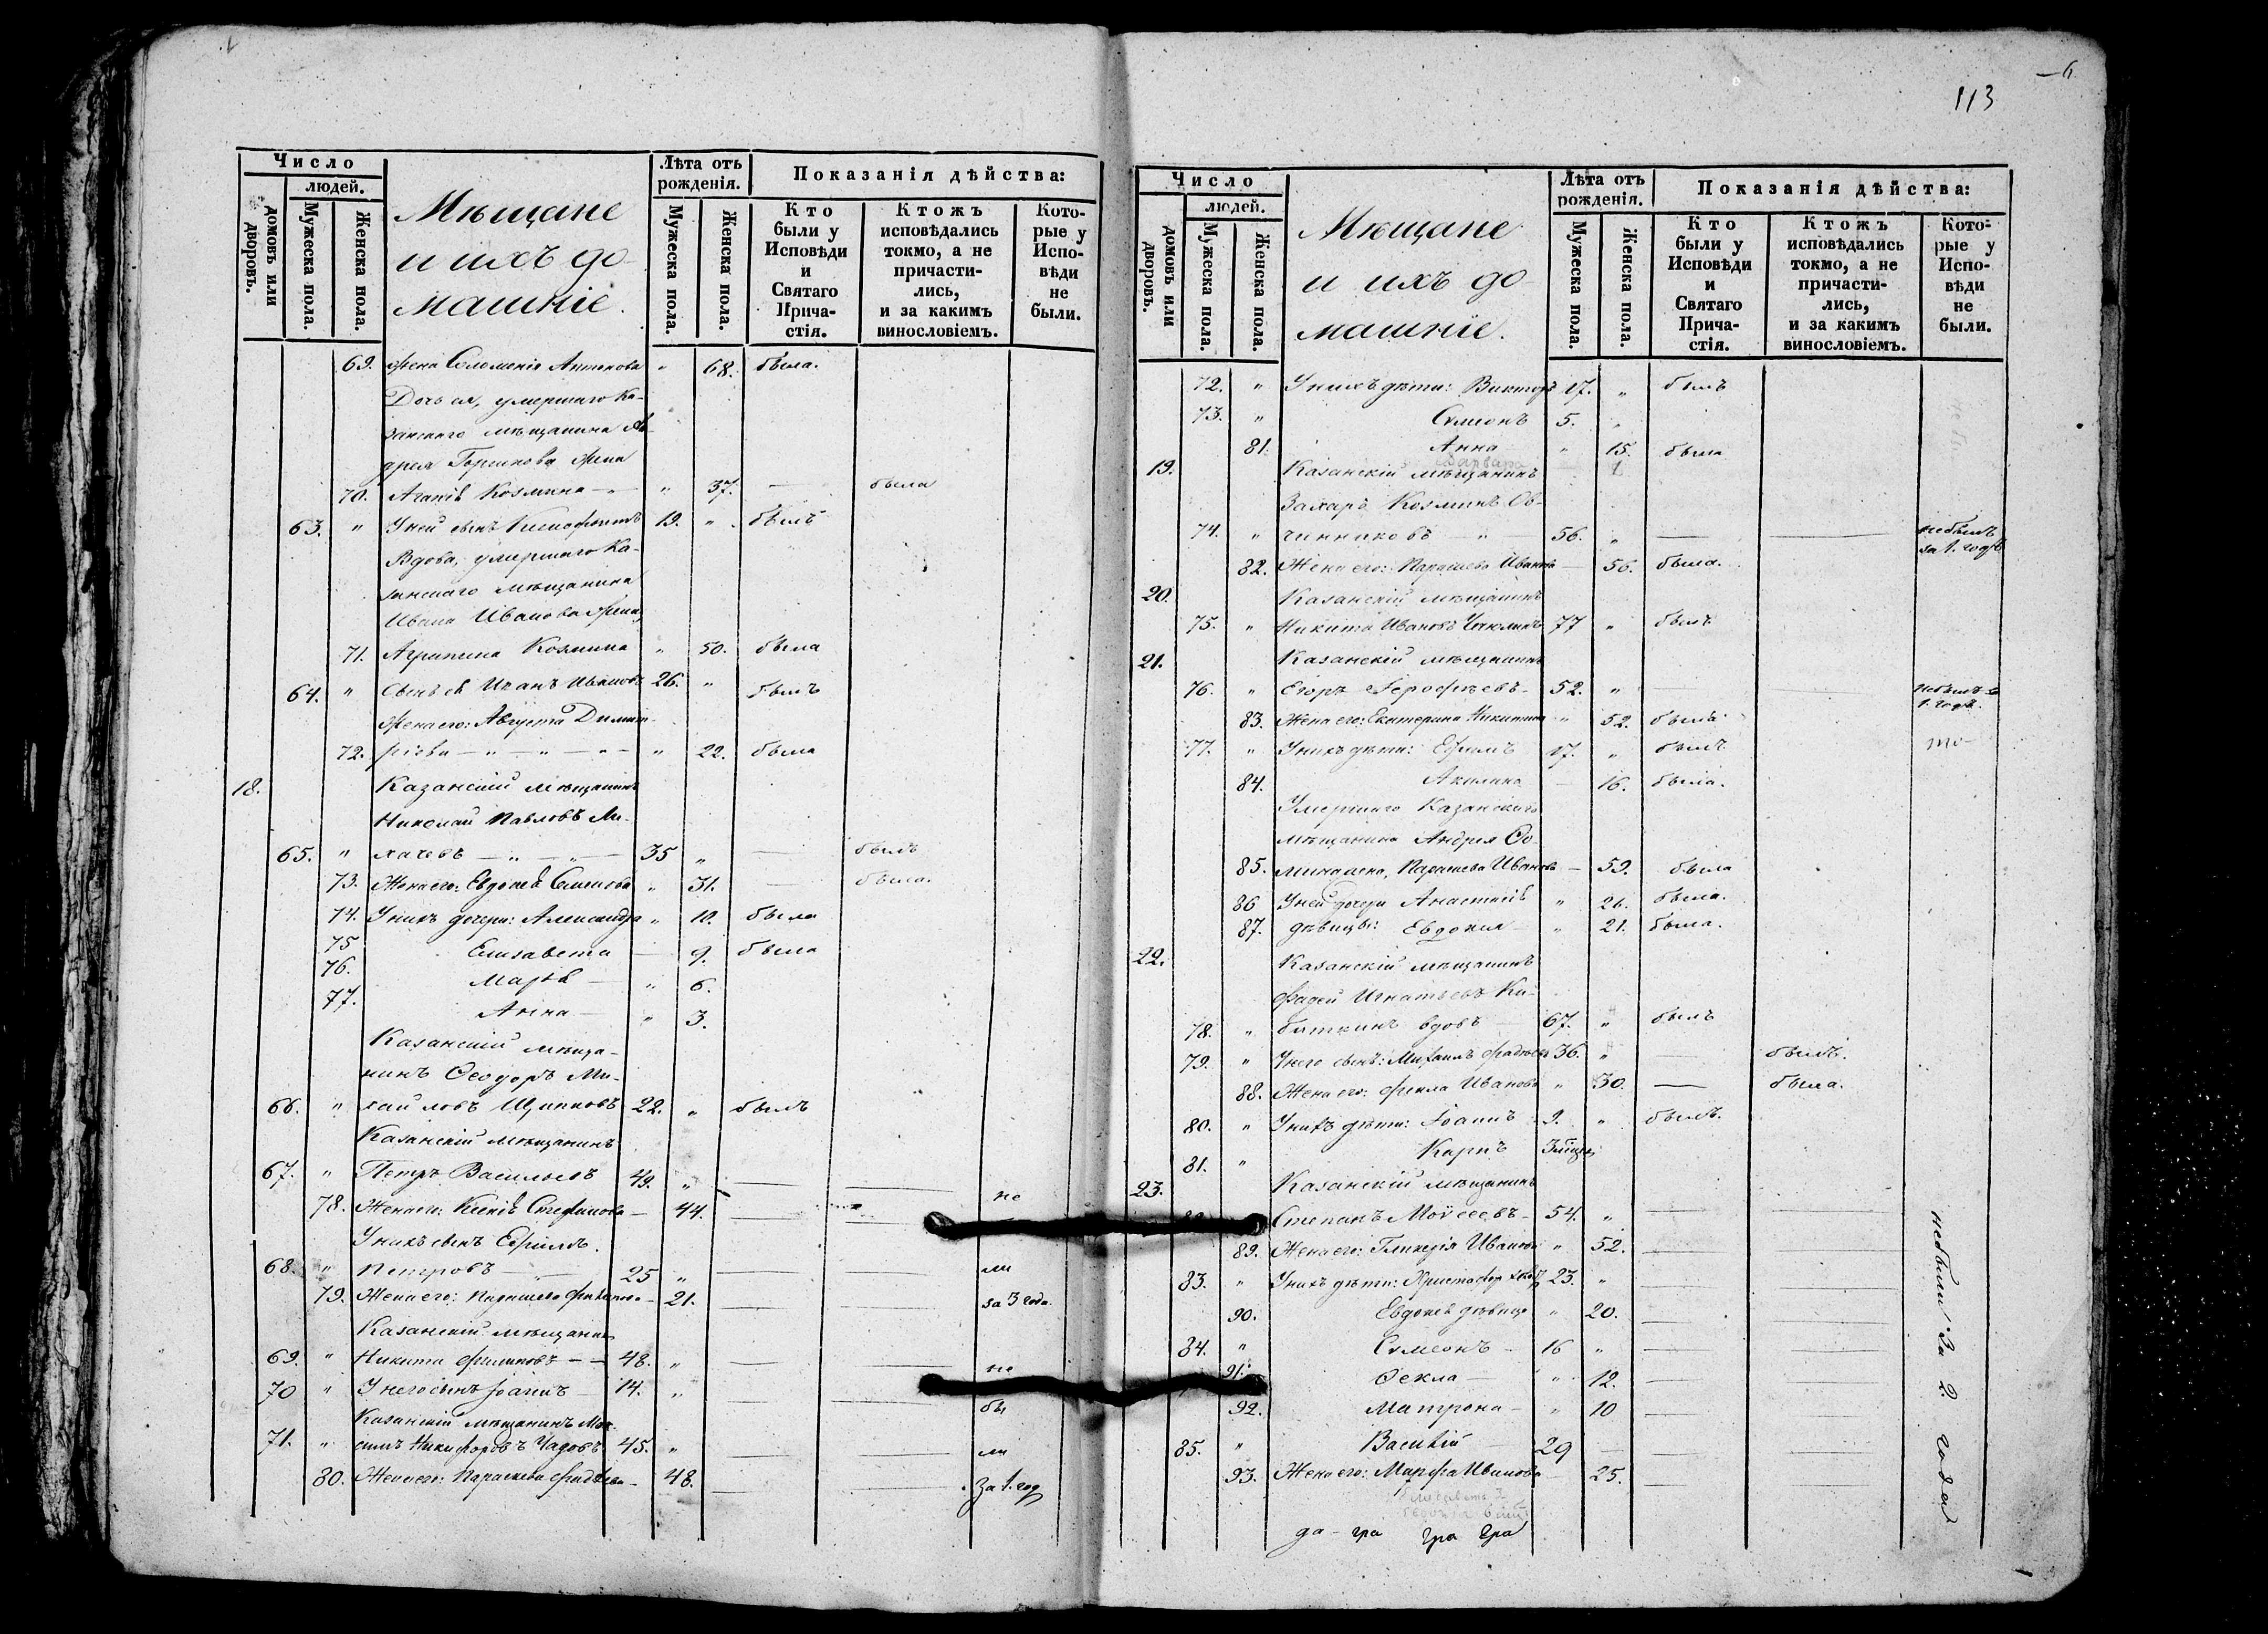 113
Число
людей.
домовъ или дворовъ.
Мужеска пола.
Женска пола.
Мѣщане
и ихъ до-
машніе.
Лѣта отъ
рожденія.
Мужеска пола.
Женска пола.
Показанія дѣйства:
Кто
были у
Исповѣди
и
Святаго
Прича-
стія.
Ктожъ
исповѣдались
токмо, а не
причасти-
лись,
и за какимъ
винословіемъ.
Кото-
рые у
Испо-
вѣди
не
были.
69. Жена Соломонія Антонова " 68. была.
Дочь ея, умершаго Ка-
занскаго мѣщанина Ан-
дрея жена
70. Агапія Козмина " 37. — была
63. " У ней сынъ 19. " былъ
Вдова, умершаго Ка-
занскаго мѣщанина
Ивана Иванова жена,
71. Агрипина Козмина " 50. была
64. " Сынъ ея Иванъ Ивановъ 26. " былъ
Жена его: Августа Димит-
72. ріева — " — " — " — " 22. была
18. Казанскій мѣщанинъ
Николай Павловъ Ми-
65. " хачевъ — " — " — 35 " — былъ
73. Жена его: Евдокія Семенова " 31. — была.
74. У нихъ дочери: Александра " 10. была
75 Елизавета — 9. была
76. Марія — " 6.
77. Анна — " 3.
Казанскій мѣща-
нинъ Ѳеодоръ Ми-
66. " хайловъ Щипковъ 22. " былъ
Казанскій мѣщанинъ
67. " Петръ Васильевъ 49. " — —
78. Жена его: Ксенія Стефанова — 44. — — не
У нихъ сынъ Ефимъ
68. " Петровъ — " — 25 " — — ли
79. Жена его: Параскева — 21. — — за 3 года.
Казанскій мѣщанинъ
69. " Никита Филиповъ — — 48. " — — не
70 " У него сынъ Іоаннъ — 14. " — — бы
Казанскій мѣщанинъ Мак-
71. " симъ Никифоровъ Чадовъ 45. " — — ли
80. Жена его: Параскева Фадѣева — 48. — — за 1. год
Число
людей.
домовъ или дворовъ.
Мужеска пола.
Женска пола.
Мѣщане
и ихъ до-
машніе.
Лѣта отъ
рожденія.
Мужеска пола.
Женска пола.
Показанія дѣйства:
Кто
были у
Исповѣди
и
Святаго
Прича-
стія.
Ктожъ
исповѣдались
токмо, а не
причасти-
лись,
и за какимъ
винословіемъ.
Кото-
рые у
Испо-
вѣди
не
были.
72. " У нихъ дѣти: Викторъ 17. " былъ
73. " Симеонъ 5. "
81. Анна " 15. была
Варвара
19. Казанскій мѣщанинъ
Захаръ Козминъ Ов-
74. " чинниковъ — " — 56. " — — не былъ
за 1. годъ
82. Жена его: Параскева Иванова — 56. была.
20. Казанскій мѣщанинъ
75. " Никита Ивановъ 77 " былъ
21. Казанскій мѣщанинъ
76. " Егоръ Ерофѣевъ — 52. " — не былъ за
1. годъ.
83. Жена его: Екатерина Никитина " 52. была
77. " У нихъ дѣти: Ефимъ 17. " былъ
84. Акилина — 16. была.
Умершаго Казанскаго
мѣщанина Андрея Ѳо-
85. мина жена, Параскева Иванова — 59. была
86 У ней дочери Анастасія " 26. была.
87. дѣвицы: Евдокия — " 21. была.
22. Казанскій мѣщанинъ
Фадей Игнатьевъ Ки-
78. " биткинъ вдовъ — 67. " былъ
79. " У него сынъ: Михаилъ Фадѣевъ 36. " — былъ.
88. Жена его: Фекла Иванова " 30. — была.
80. " У нихъ дѣти: Іоаннъ 9. " былъ.
81. " Карпъ 3 мѣсяц.
23. Казанскій мѣщанинъ
Степанъ Моѵсеевъ — 54. " — —
89. Жена его: Гликерія Иванова " 52. — —
83. " У нихъ дѣти: Христофоръ 23. " — —
90. Евдокія дѣвица " 20. — —
84. " Симеонъ — 16 " — —
91. Ѳекла — " 12. — —
92. Матрона — " 10 — —
85. " Василій — 29 — —
93. Жена его: Марфа Иванова — 25. — —
не были за 2. года